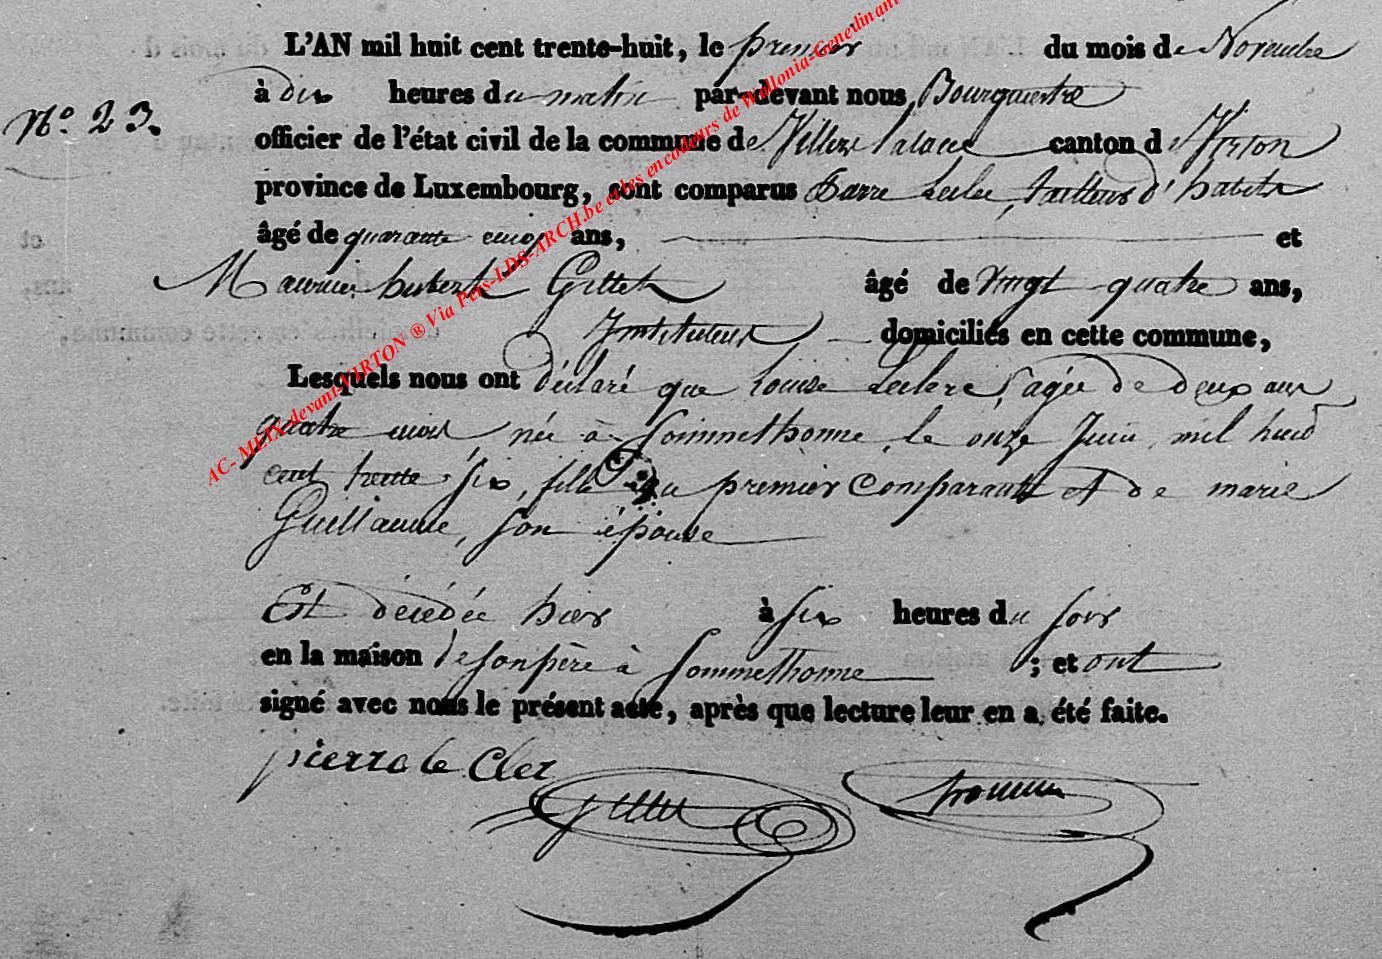 L'AN mil huit cent trente-huit, le premier du mois de Novembre
à dix heures du matin par-devant nous, Bourgmestre
N.o 23.
officier de l'état civil de la commune de Villers laloue canton de Virton
province de Luxembourg, sont comparus Pierre Leclec, tailleur d'habits
âgé de quarante cinq ans, et
Maurice hubert Gillet âgé de Vingt quatre ans,
Instituteur domiciliés en cette commune,
Lesquels nous ont déclaré que Louise Leclerc, agée de deux ans
quatre mois, née à Sommethonne, le onze Juin mil huit
cent trente six, fille du premier Comparant et de marie
Guillaume, son épouse
Est décédée hier à six heures du soir
en la maison de son père à Sommethonne ; et ont
signé avec nous le présent acte, après que lecture leur en a été faite.
pierre le Cler
Gillet
AC- MEIX-devant-VIRTON ® Via Pers-LDS-ARCH.be et les encodeurs de Wallonia-Genedinant